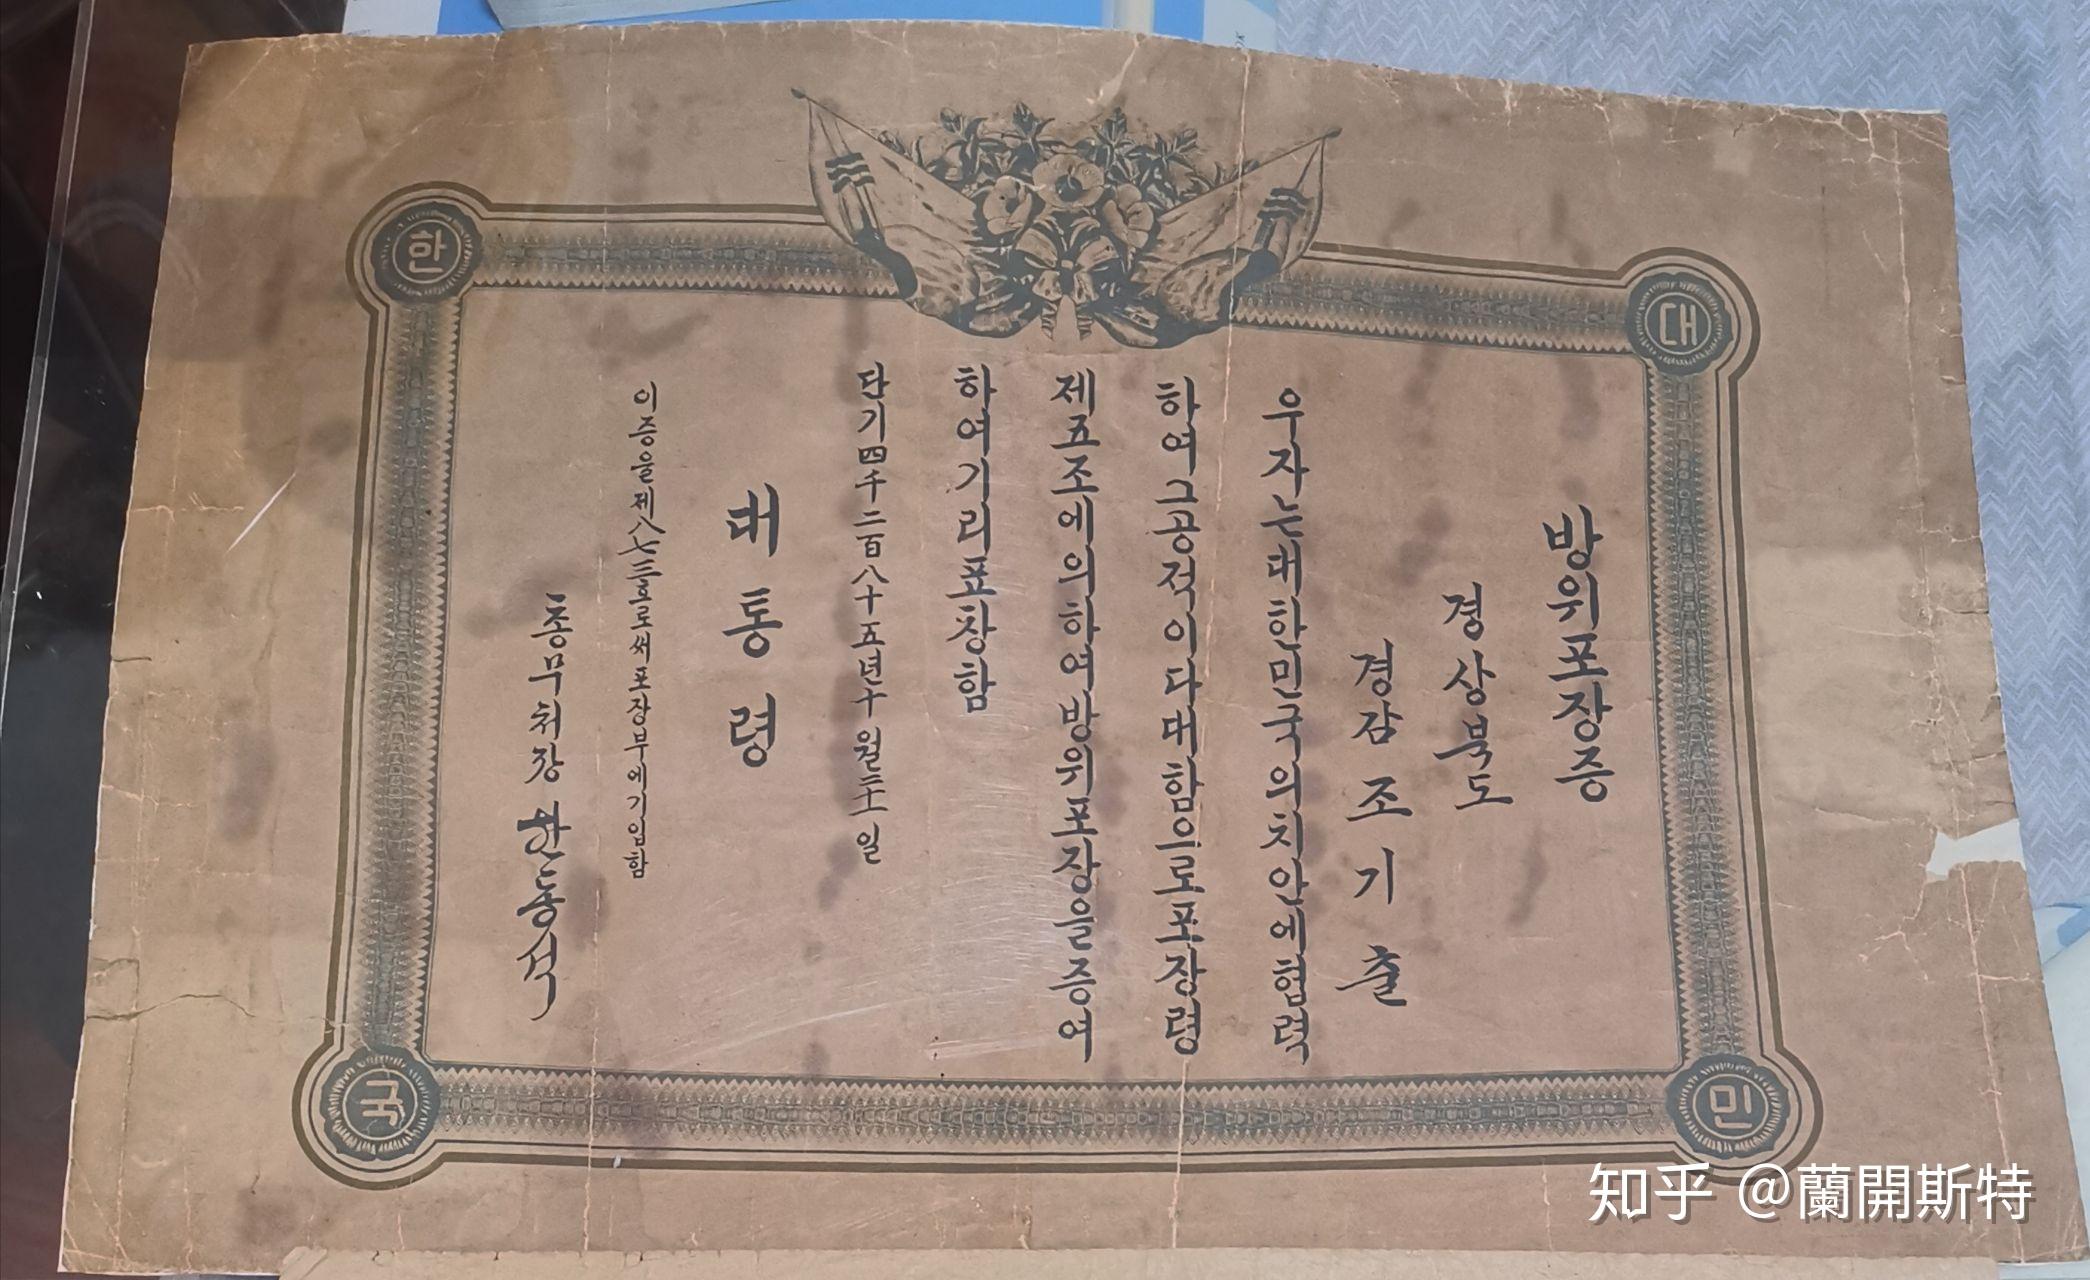 대
한
민
국
방위포장증
경상북도
경감 조기출
우자는대한민국의치안에협력
하여그공적이다대함으로포장령
제五조에의하여방위포장을증여
하여기리표창함
단기四千二百八十五년十월三十一일
대통령
이증을제八七三호로써포장부에기입함
총무처장 한동석
知乎 @蘭開斯特